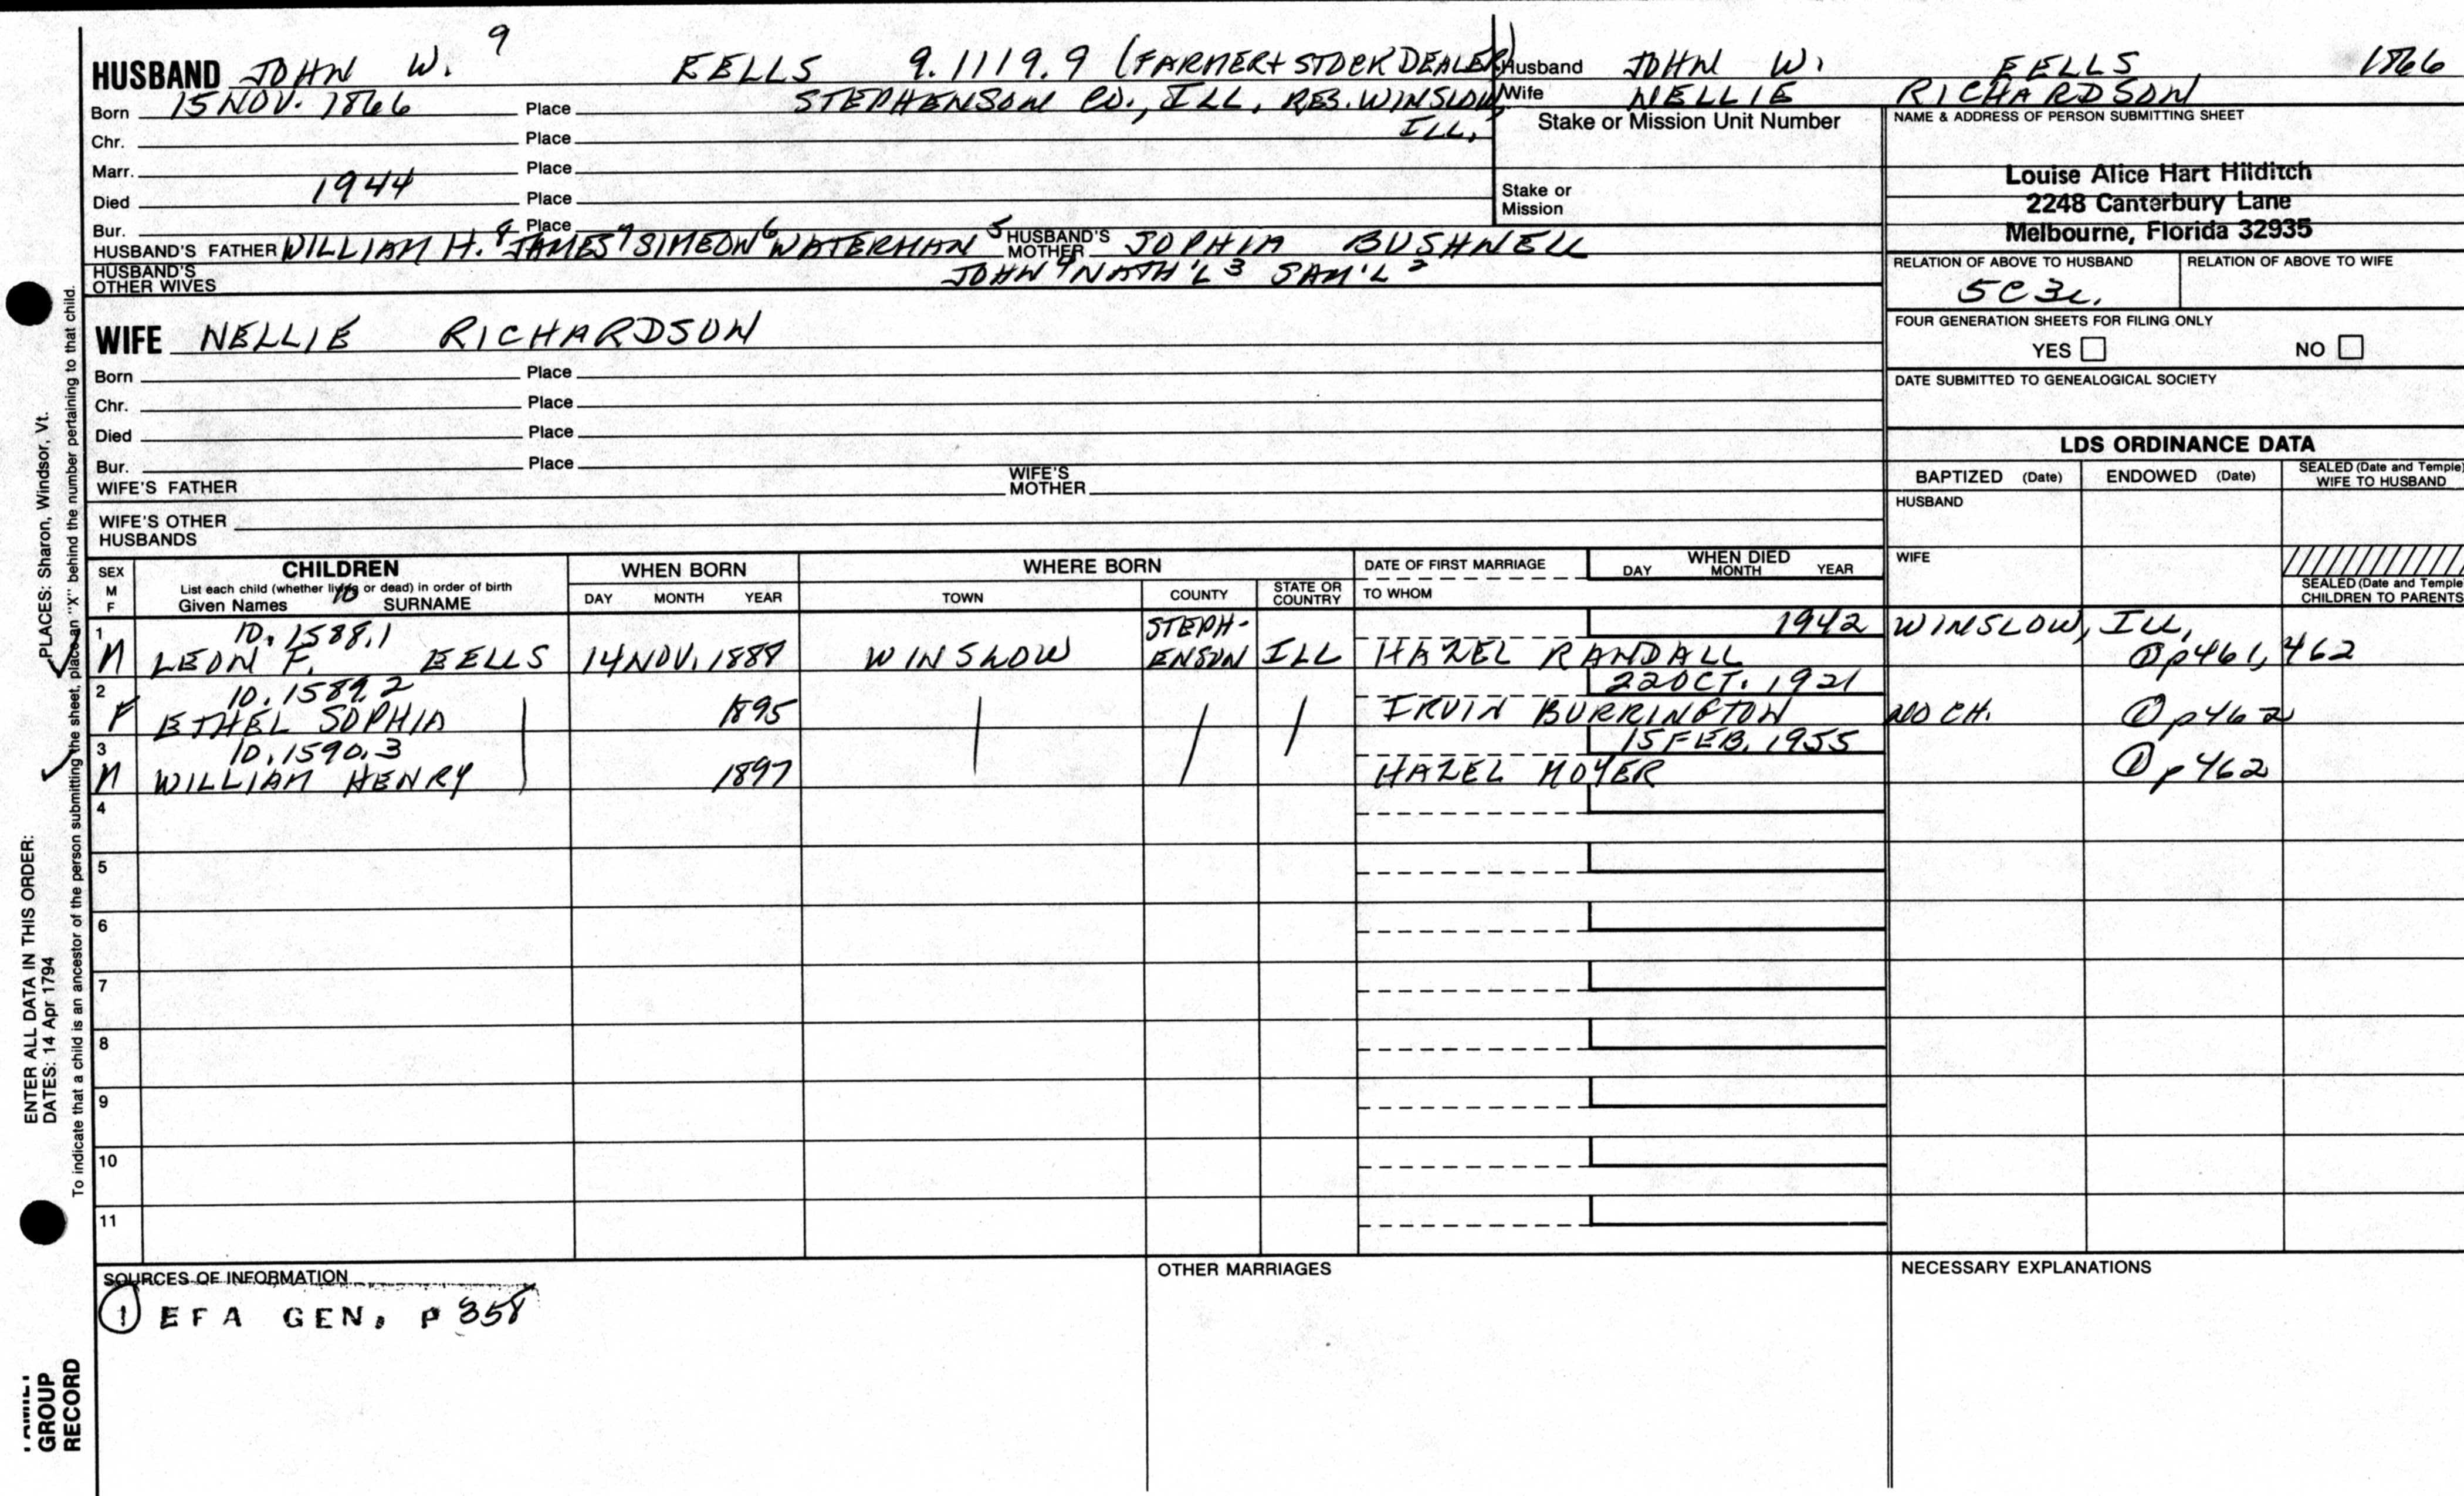 HUSBAND JOHN W. 9 EELLS 9.1119.9 (FARMER + STOCK DEALER)
Born 15 NOV. 1866 Place STEPHENSON CO., ILL, RES. WINSLOW,
Chr. Place ILL,
Marr. Place
Died 1944 Place
Bur. Place
HUSBAND'S FATHER WILLIAM H. 8 JAMES 7 SIMEON 6 WATERMAN 5 HUSBAND'S MOTHER SOPHIA BUSHNELL
HUSBAND'S OTHER WIVES JOHN 4 NATH'L 3 SAM'L 2
Husband JOHN W. EELLS 1866
Wife NELLIE RICHARDSON
Stake or Mission Unit Number
Stake or
Mission
NAME & ADDRESS OF PERSON SUBMITTING SHEET
Louise Alice Hart Hilditch
2248 Canterbury Lane
Melbourne, Florida 32935
RELATION OF ABOVE TO HUSBAND RELATION OF ABOVE TO WIFE
5C3r.
FOUR GENERATION SHEETS FOR FILING ONLY
YES NO
DATE SUBMITTED TO GENEALOGICAL SOCIETY
WIFE NELLIE RICHARDSON
Born Place
Chr. Place
Died Place
Bur. Place
WIFE'S FATHER WIFE'S MOTHER
WIFE'S OTHER
HUSBANDS
LDS ORDINANCE DATA
BAPTIZED (Date) ENDOWED (Date) SEALED (Date and Temple) WIFE TO HUSBAND
HUSBAND
WIFE
SEALED (Date and Temple
CHILDREN TO PARENTS
SEX M F CHILDREN WHEN BORN WHERE BORN DATE OF FIRST MARRIAGE WHEN DIED
List each child (whether living or dead) in order of birth
Given Names 10 SURNAME DAY MONTH YEAR TOWN COUNTY STATE OR COUNTRY TO WHOM DAY MONTH YEAR
1 10.1588.1 STEPH- 1942 WINSLOW, ILL,
M LEON F. EELLS 14 NOV. 1889 WINSLOW ENSON ILL HAZEL RANDALL ① p461, 462
2 10.1589.2 22 OCT. 1921
F ETHEL SOPHIA 1895 IRVIN BURRINGTON NO CH. ① p462
3 10.1590.3 15 FEB. 1955
M WILLIAM HENRY 1897 HAZEL MOYER ① p462
4
5
6
7
8
9
10
11
SOURCES OF INFORMATION OTHER MARRIAGES NECESSARY EXPLANATIONS
① EFA GEN. P 358
ENTER ALL DATA IN THIS ORDER:
DATES: 14 Apr 1794 PLACES: Sharon, Windsor, Vt.
To indicate that a child is an ancestor of the person submitting the sheet, place an "X" behind the number pertaining to that child.
FAMILY
GROUP
RECORD